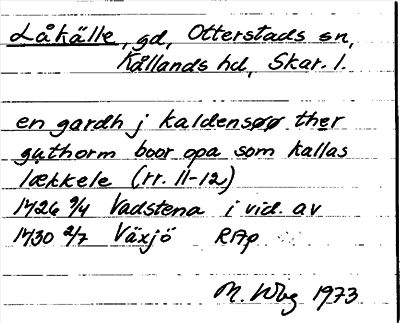 Låkälle, gd, Otterstads sn,
Kållands hd, Skar. l.
en gardh j kaldensøø ther
guthorm boor opa som kallas
lækkele (rr. 11-12)
1426 9/4 Vadstena i vid. av
1430 2/7 Växjö RAp
M. Wbg 1973